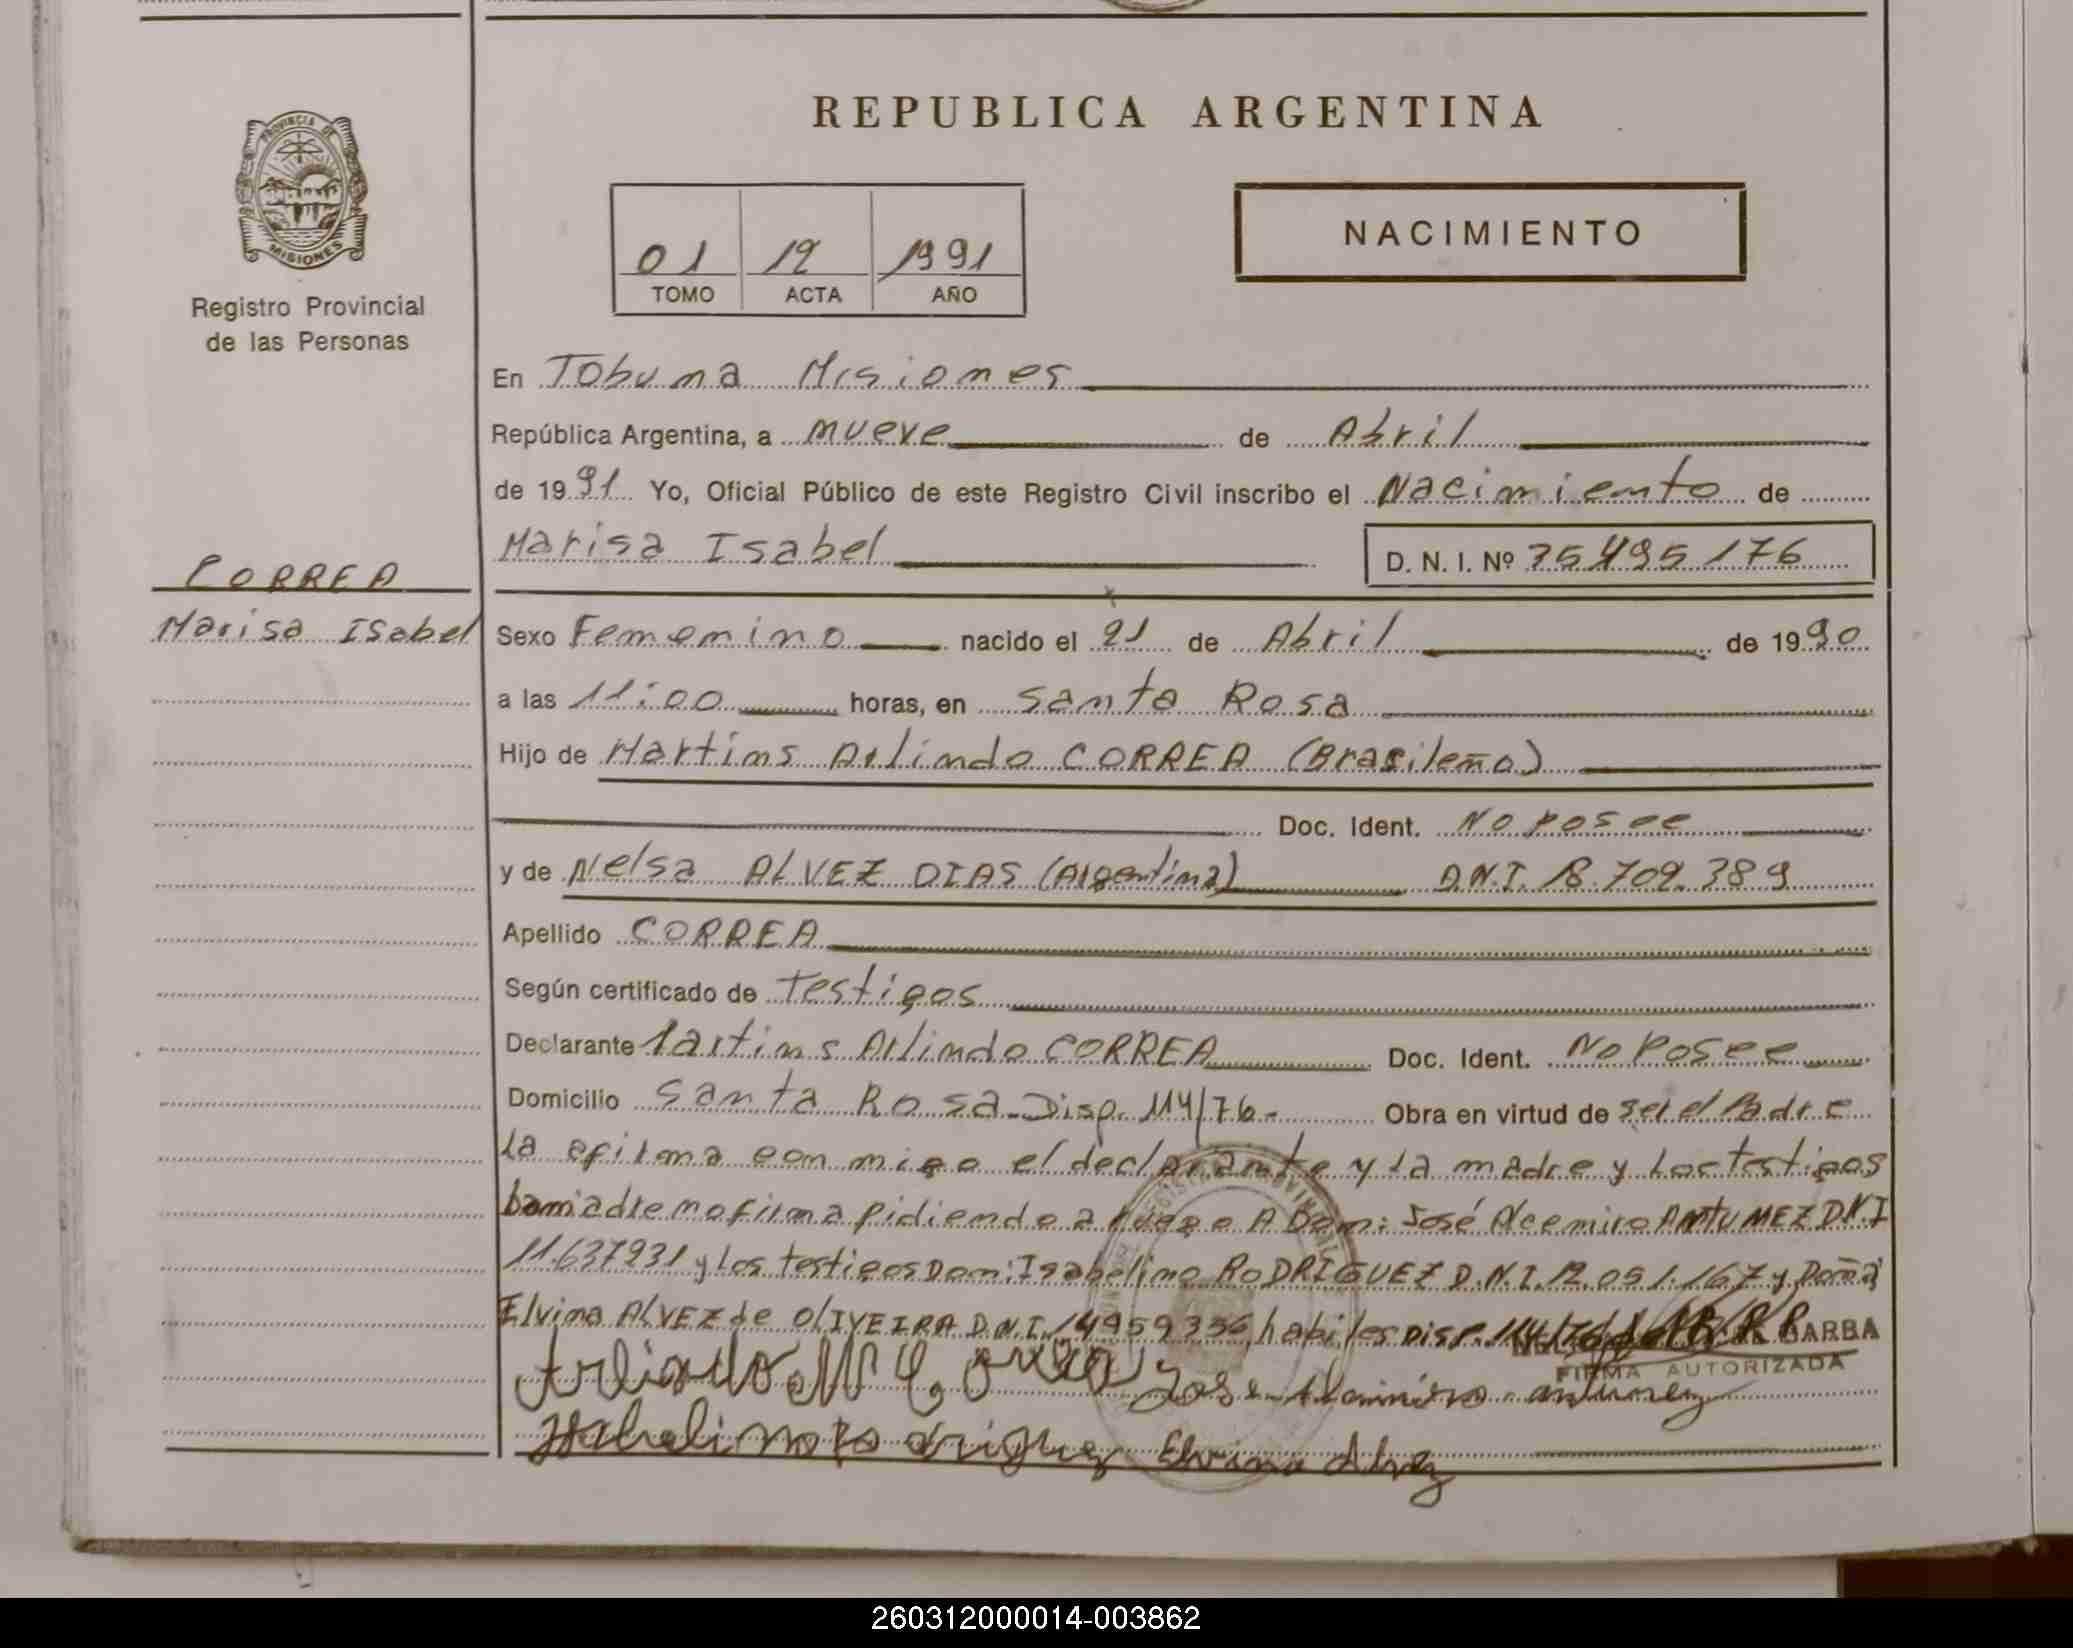 PROVINCIA DE
MISIONES
Registro Provincial
de las Personas
CORREA
Marisa Isabel
REPUBLICA ARGENTINA
01 12 1991
TOMO ACTA AÑO
NACIMIENTO
En Tobuna Misiones
República Argentina, a nueve de Abril
de 1991 Yo, Oficial Público de este Registro Civil inscribo el Nacimiento de
Marisa Isabel D. N. I. Nº 35495176
Sexo Femenino nacido el 21 de Abril de 1990
a las 11:00 horas, en Santa Rosa
Hijo de Martins Arlindo CORREA (Brasileño)
Doc. Ident. No posee
y de Nelsa ALVEZ DIAS (Argentina) D.N.I. 18.709.389
Apellido CORREA
Según certificado de testigos
Declarante Martins Arlindo CORREA Doc. Ident. No Posee
Domicilio Santa Rosa - Disp. 114/76 - Obra en virtud de ser el Padre
la firma con migo el declarante y la madre y los testigos
la madre no firma pidiendo a ruego A Don: José Alcemiro ANTUNEZ D.N.I
11.637931 y Los testigos Don: Isabelino RODRIGUEZ D.N.I. 12.051.167 y Doña
Elvina ALVEZ de OLIVEIRA D.N.I. 14959336, habiles Disp. 114/76 BARBA
FIRMA AUTORIZADA
Arlindo M Correa Jose Alcimiro antunez
Isabelino Rodriguez Elvina Alvez
260312000014-003862